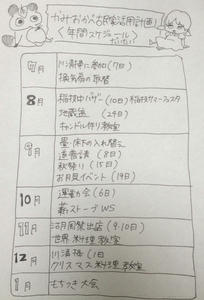 かみおかべ古民家活用計画
年間スケジュール だいたい
7月
川掃除に参加(7日)
換気扇の取替
8月
稲枝中バザー(10日)稲枝サマーフェスタ
地蔵盆 (24日)
キャンドル作り教室
9月
畳・床下の入れ替え
道普請 (8日)
秋祭り(15日)
お月見イベント(19日)
10月
運動会(6日)
薪ストーブWS
11月
出店(9.10日)
世界料理教室
12月
川清掃(1日
クリスマス料理教室
1月
もちつき大会